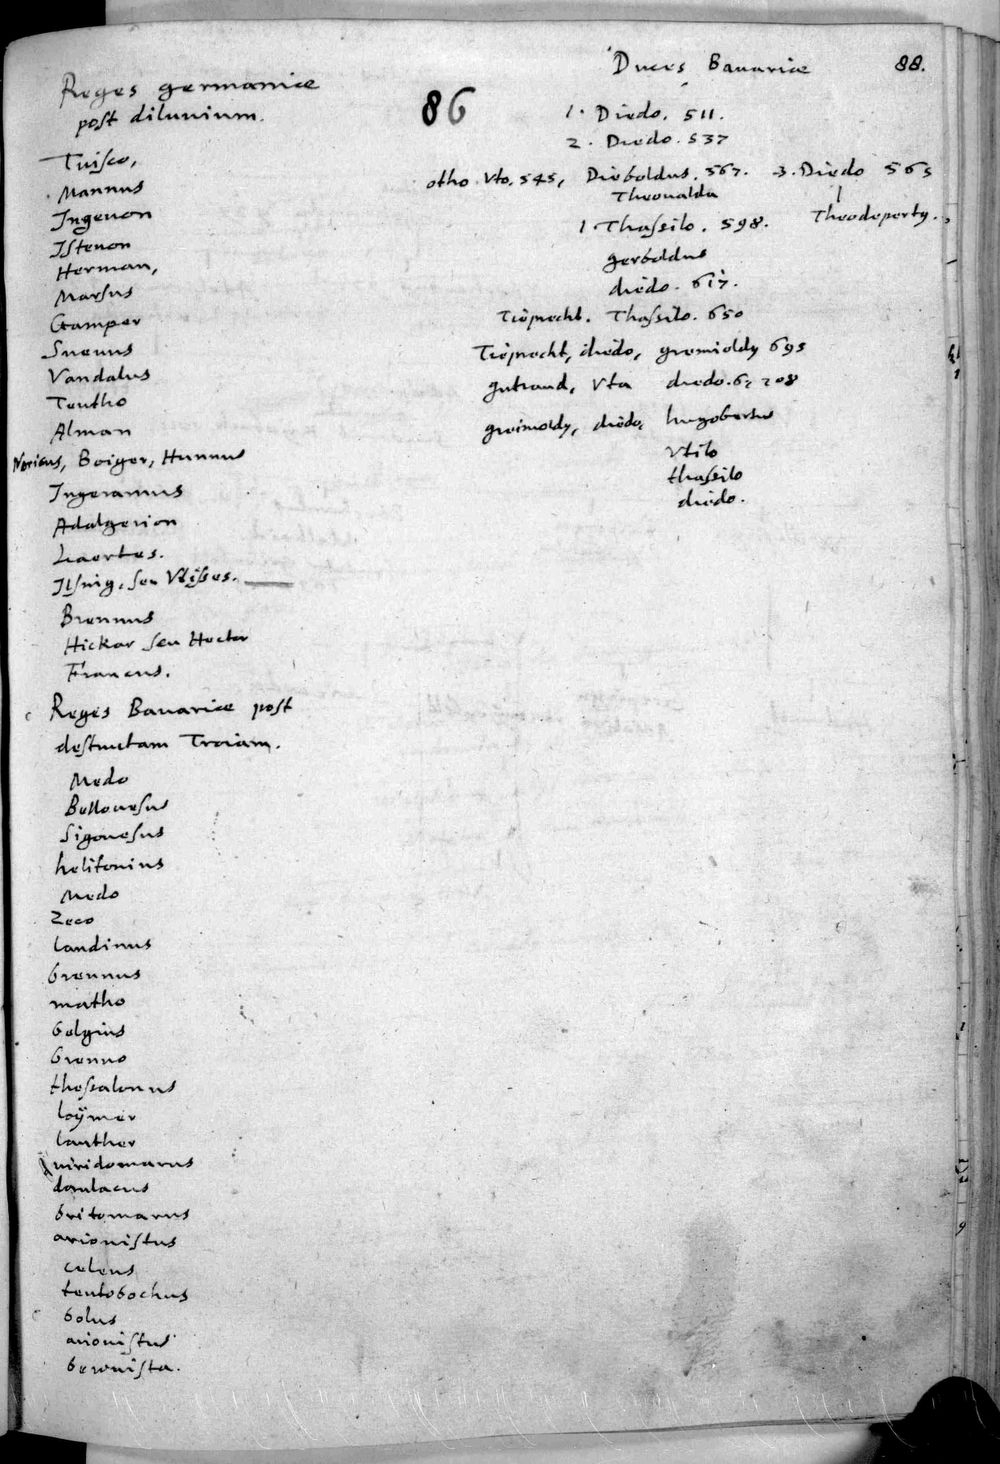 Reges germanice
post diluuium.
Tuisco,
Mannus
Ingeuon
Isteuon
Herman,
Marsus
Gamper
Sueuus
Vandalus
Teutho
Alman
Noricus, Boiger, Hunnus
Ingeramus
Adalgerion
Laertes.
Ilsnig, seu Vlisses.
Brennus
Hickar seu Hector
Francus.
Reges Bauariæ post
destructam Troiam.
Medo
Bellouesus
Sigouesus
helitonius
Medo
Zeco
landinus
brennus
matho
belgius
brenno
thessalonus
loÿmer
lauther
uiridomarus
daulacus
britomarus
arionistus
celeus
teutobochus
bolus
arionistus
beronista.
86
Duces Bauariæ
88.
1. Diedo. 511.
2. Diedo. 537
otho. Vto. 545, Dieboldus. 567. 3. Diedo 565
Theoualda
1 Thassilo. 598. Theodeperty.
gerboldus
diedo. 617.
Tieprecht. Thassilo. 650
Tieprecht, diedo, grimoldy 695
gutraud, Vta diedo. 6. 708
grimoldy, diedo, hugobertus
Vtilo
thassilo
diedo.